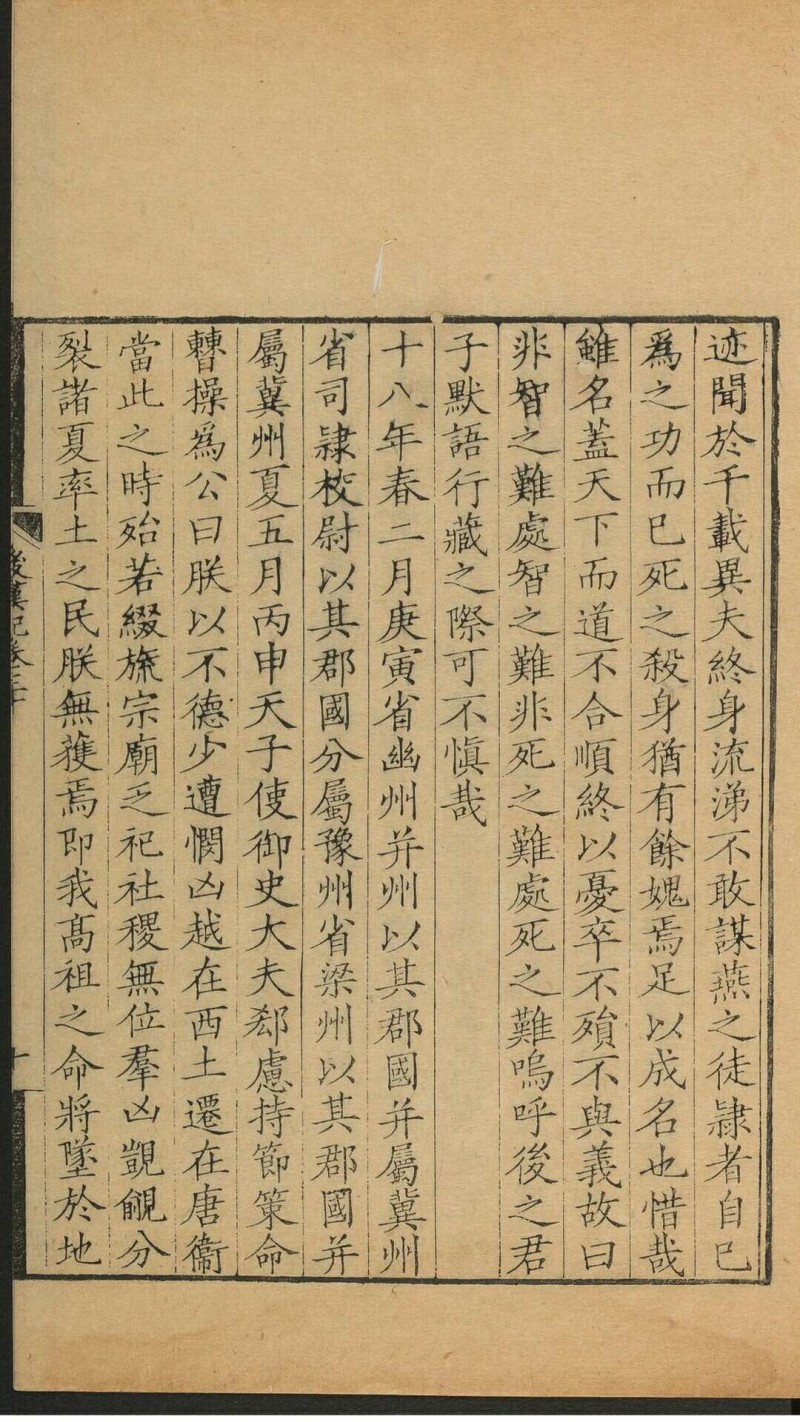 迹聞於千載異夫終身流涕不敢謀燕之徒隷者自巳
爲之功而巳死之殺身猶有餘媿焉足以成名也惜哉
雖名蓋天下而道不合順終以憂卒不殞不與義故曰
非智之難處智之難非死之難處死之難嗚呼後之君
子默語行藏之際可不慎哉
十八年春二月庚寅省幽州并州以其郡國并屬冀州
省司隷校尉以其郡國分屬豫州省梁州以其郡國并
屬冀州夏五月丙申天子使御史大夫郄慮持節策命
曹操爲公曰朕以不德少遭憫凶越在西土遷在唐衞
當此之時殆若綴旒宗廟乏祀社稷無位羣凶覬覦分
裂諸夏率土之民朕無獲焉即我髙祖之命將墜於地
後漢紀卷三十
十